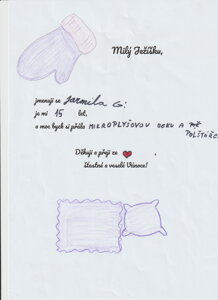 Milý Ježíšku,
jmenuji se Jarmila G.
je mi 15 let,
a moc bych si přála MIKROPLYŠOVOU DEKU A
POLŠTÁŘE
Děkuji a přeji ze ❤.
šťastné a veselé Vánoce!